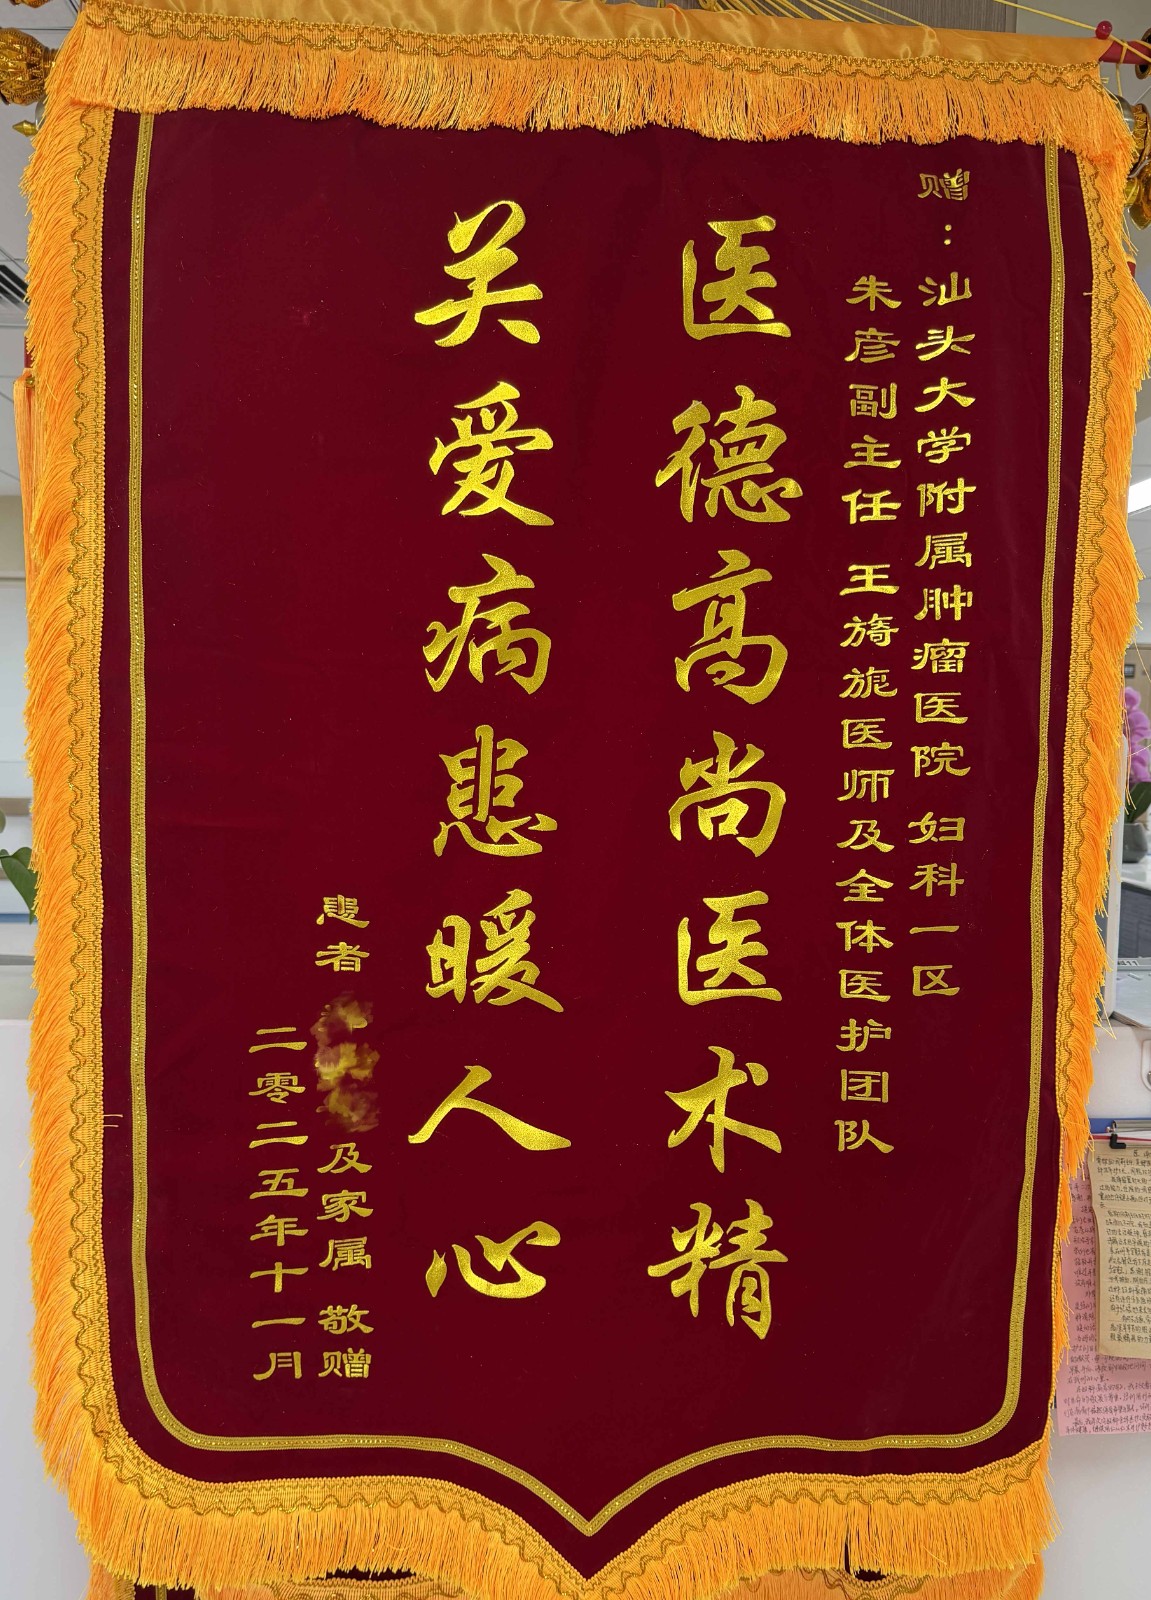 赠：汕头大学附属肿瘤医院 妇科一区
朱彦副主任 王旖旎医师及全体医护团队
医德高尚医术精
关爱病患暖人心
患者 及家属 敬赠
二零二五年十一月